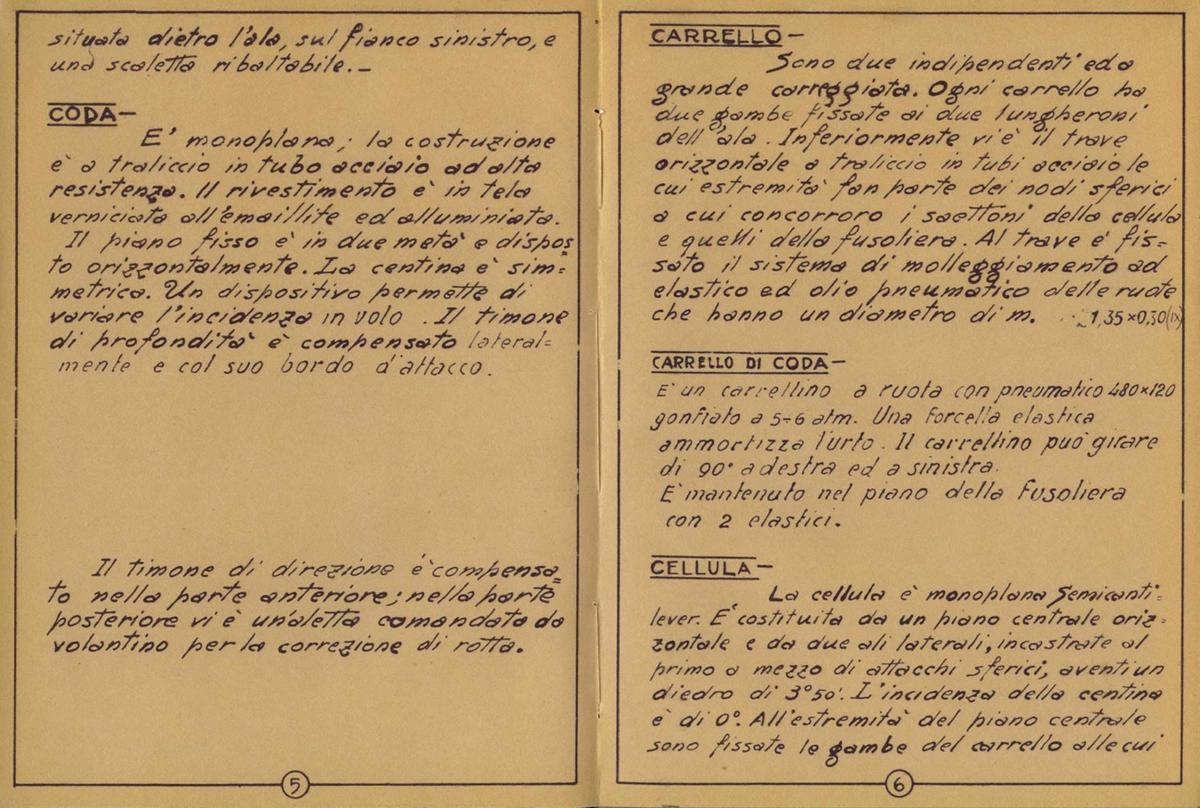 situata dietro l'ala, sul fianco sinistro, e
una scaletta ribaltabile.—
CODA—
E' monoplana; la costruzione
è a traliccio in tubo acciaio ad alta
resistenza. Il rivestimento è in tela
verniciata all'emaillite ed alluminiata.
Il piano fisso è in due metà e dispos=
to orizzontalmente. La centina è sim=
metrica. Un dispositivo permette di
variare l'incidenza in volo . Il timone
di profondità è compensato lateral=
mente e col suo bordo d'attacco.
Il timone di direzione è compensa=
to nella parte anteriore; nella parte
posteriore vi è un'aletta comandata da
volantino per la correzione di rotta.
5
CARRELLO—
Sono due indipendenti ed a
grande carreggiata. Ogni carrello ha
due gambe fissate ai due lungheroni
dell'ala. Inferiormente vi è il trave
orizzontale a traliccio in tubi acciaio le
cui estremità fan parte dei nodi sferici
a cui concorroro i saettoni della cellula
e quelli della fusoliera. Al trave è fis=
sato il sistema di molleggiamento ad
elastico ed olio pneumatico delle ruote
che hanno un diametro di m. 1,35×0,30(IX)
CARRELLO DI CODA—
E' un carrellino a ruota con pneumatico 480×120
gonfiato a 5÷6 atm. Una forcella elastica
ammortizza l'urto. Il carrellino può girare
di 90° a destra ed a sinistra.
E' mantenuto nel piano della fusoliera
con 2 elastici.
CELLULA—
La cellula è monoplana Semicanti=
lever. E' costituita da un piano centrale oriz=
zontale e da due ali laterali, incastrate al
primo a mezzo di attacchi sferici, aventi un
diedro di 3°50'. L'incidenza della centina
è di 0°. All'estremità del piano centrale
sono fissate le gambe del carrello alle cui
6